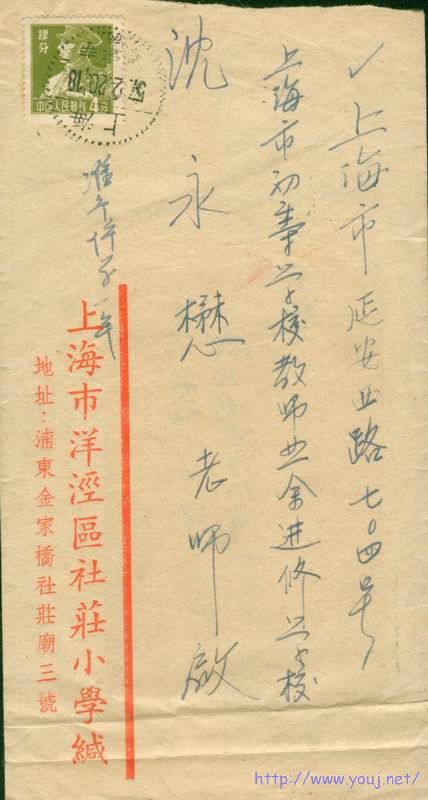 上海市延安西路七〇四号
上海市初等学校教师业余进修学校
沈永懋老师启
上海市洋涇區社莊小學緘
地址：浦東金家橋社莊廟三號
肆分
中国人民郵政 4分
上海
57.2.20.18
http://www.youj.net/